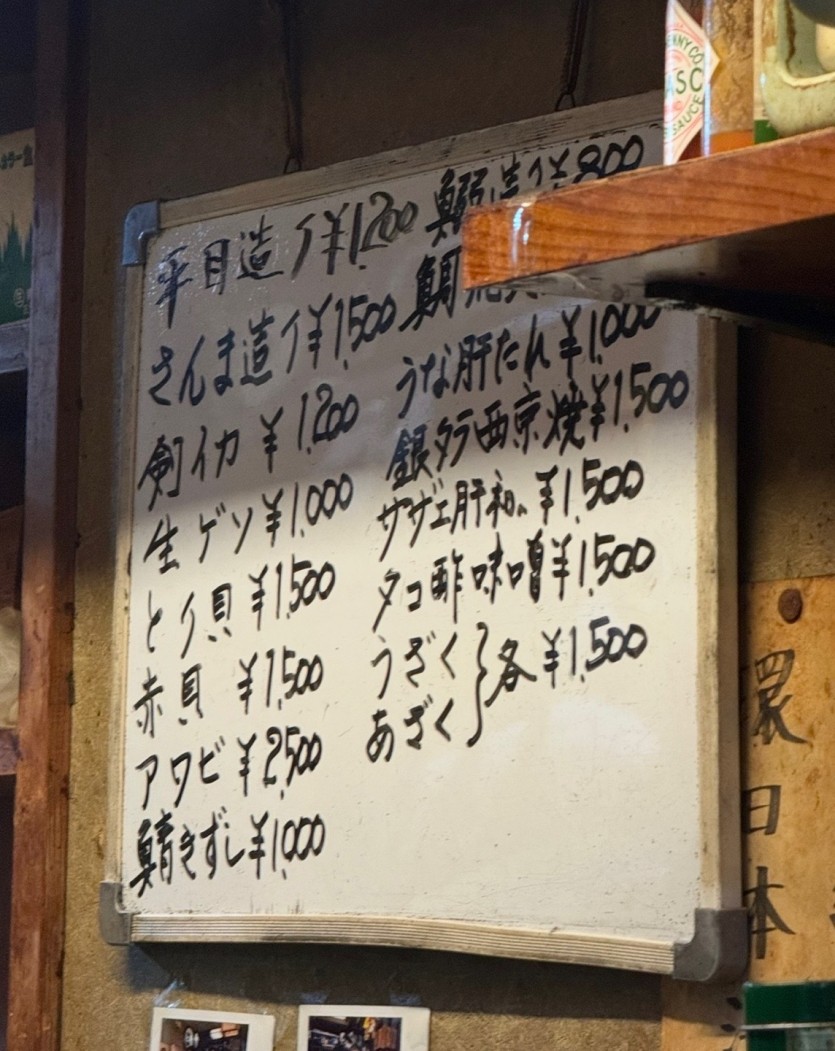 平目造イ ¥1,200
さんま造イ ¥1,500
剣イカ ¥1,200
生ゲソ ¥1,000
とり貝 ¥1,500
赤貝 ¥1,500
アワビ ¥2,500
鯖きずし ¥1,000
鰯造イ ¥800
鯛
うな肝たれ ¥1,000
銀タラ西京焼 ¥1,500
サザエ肝和 ¥1,500
タコ酢味噌 ¥1,500
うざく
あざく
各 ¥1,500
SAUCE
日本